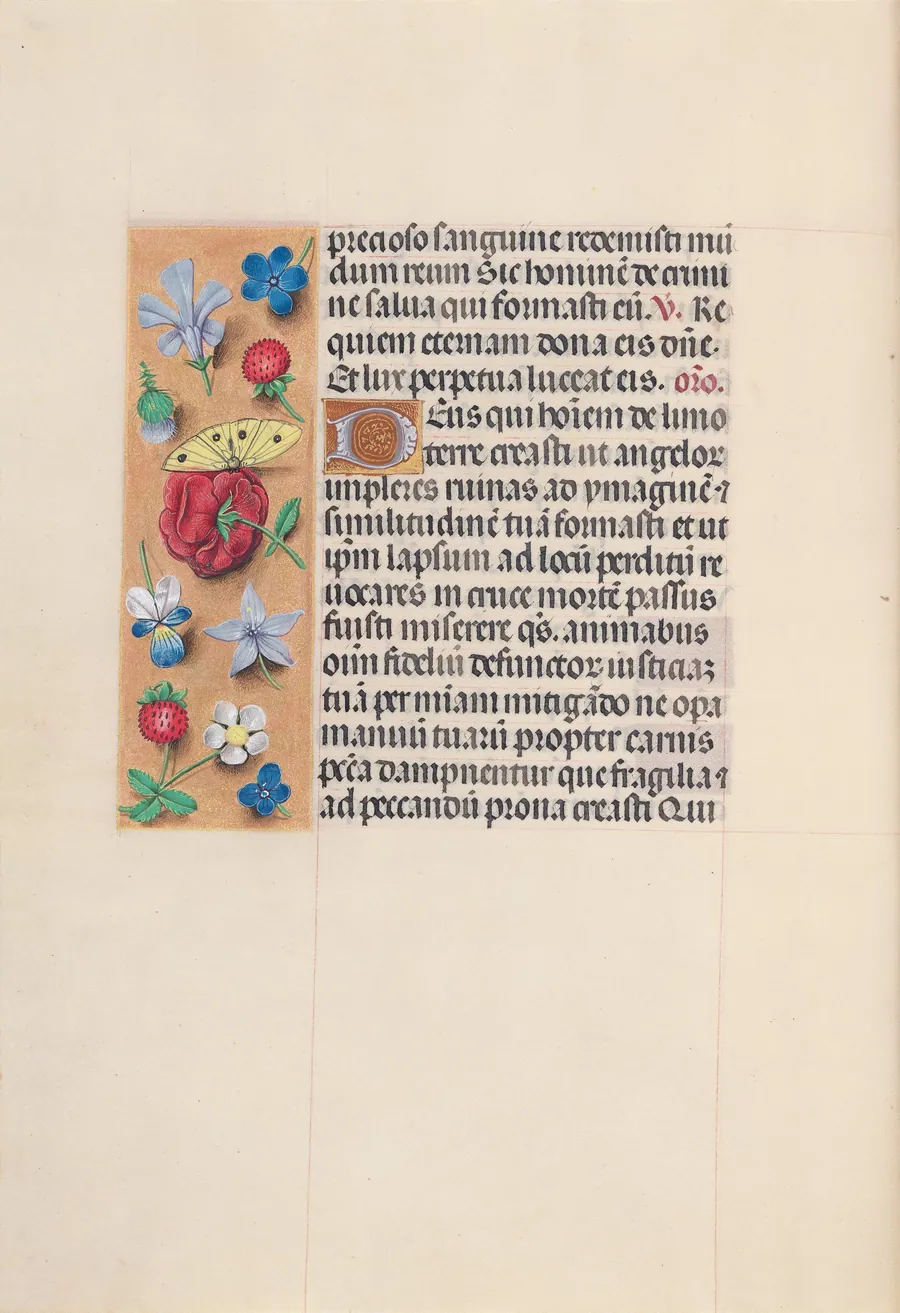 precioso sanguine redemisti mū
dum reum Sic hominē de crimi
ne salua qui formasti eū. V. Re
quiem eternam dona eis dn̄e.
Et lux perpetua luceat eis. or̄o.
Deus qui hoīem de limo
terre creasti ut angeloꝝ
impleres ruinas ad ymaginē ⁊
similitudinē tuā formasti et ut
ip̄m lapsum ad locū perditū re
uocares in cruce mortē passus
fuisti miserere qs̄. animabus
oīm fideliū defunctoꝝ iusticiaꝫ
tuā per mīam mitigādo ne oꝑa
manuū tuarū propter carnis
pc̄ca dampnentur que fragilia ⁊
ad peccandū prona creasti Qui